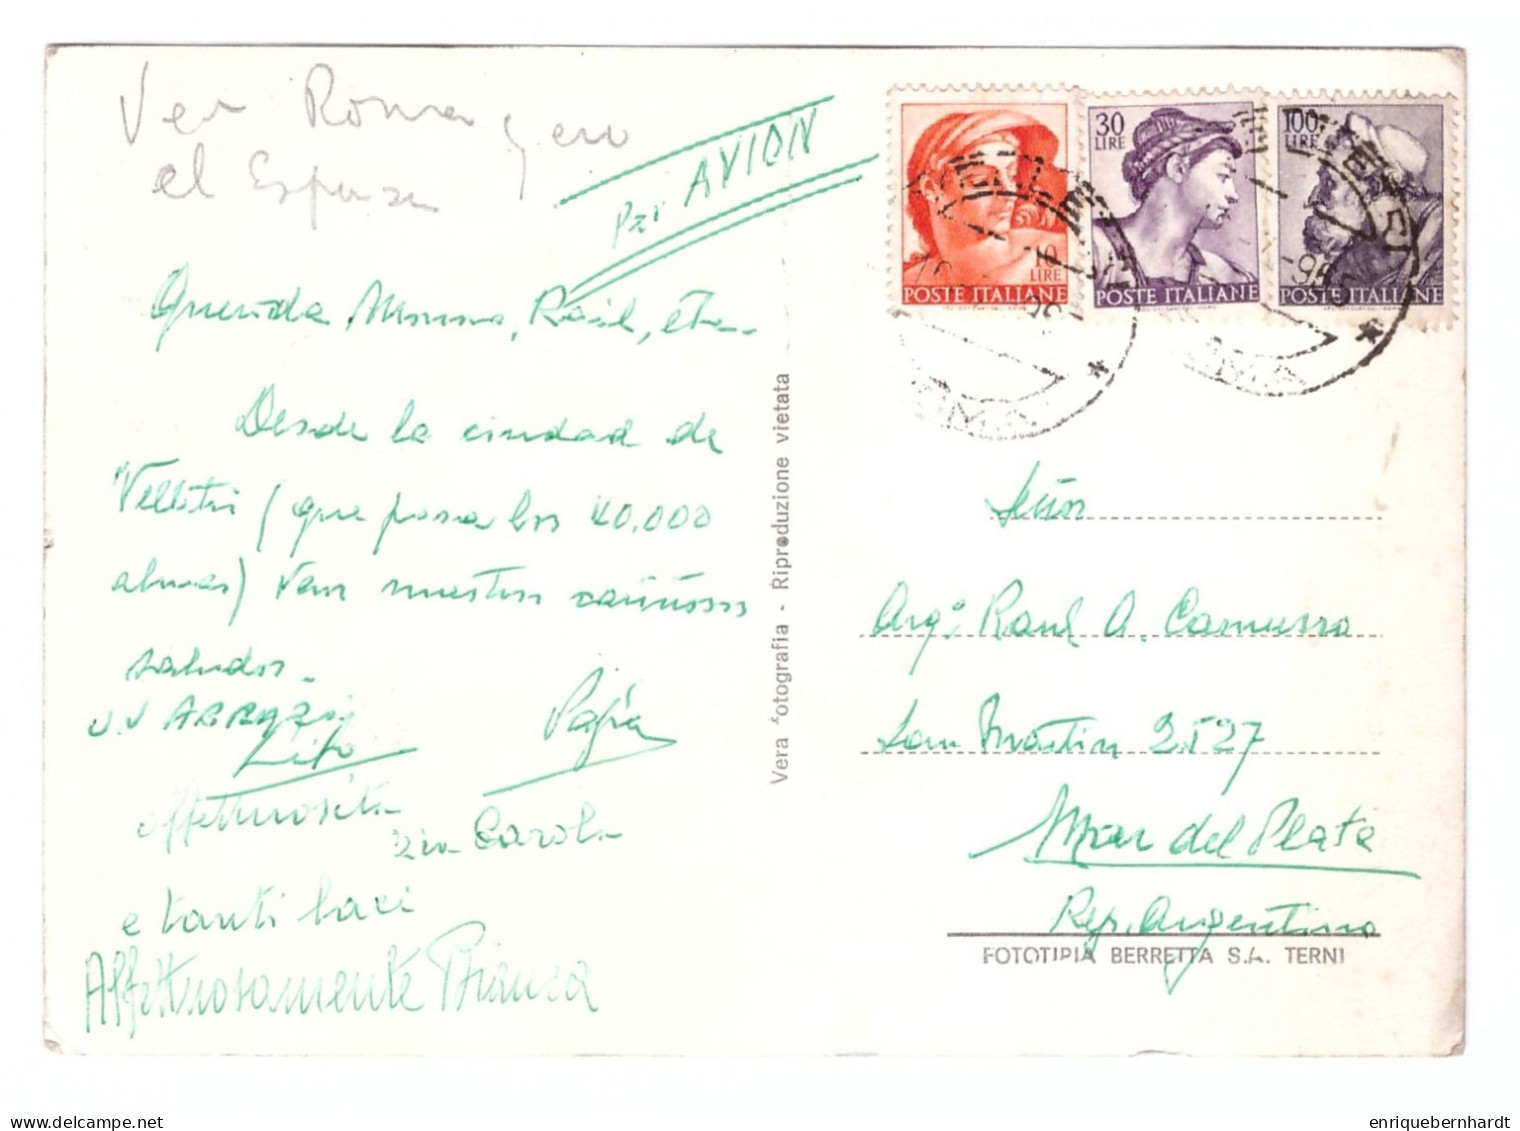 Ven Roma y en
el
Par AVION
10
LIRE
POSTE ITALIANE
30
LIRE
POSTE ITALIANE
100
LIRE
POSTE ITALIANE
VELLETRI
ROMA
Querida Mamá, Raúl, etc.
Desde la ciudad de
Velletri (que pasa los 40.000
almas) van nuestros cariñosos
saludos.
ABBRAZZI
Lito
affettuosità
zia Carola
e tanti baci
Affettuosamente Bianca
Vera fotografia - Riproduzione vietata
Señor
Arq. Raul A. Camusso
San Martin 2527
Mar del Plata
Rep. Argentina
FOTOTIPIA BERRETTA S.A. TERNI
enriquebernhardt